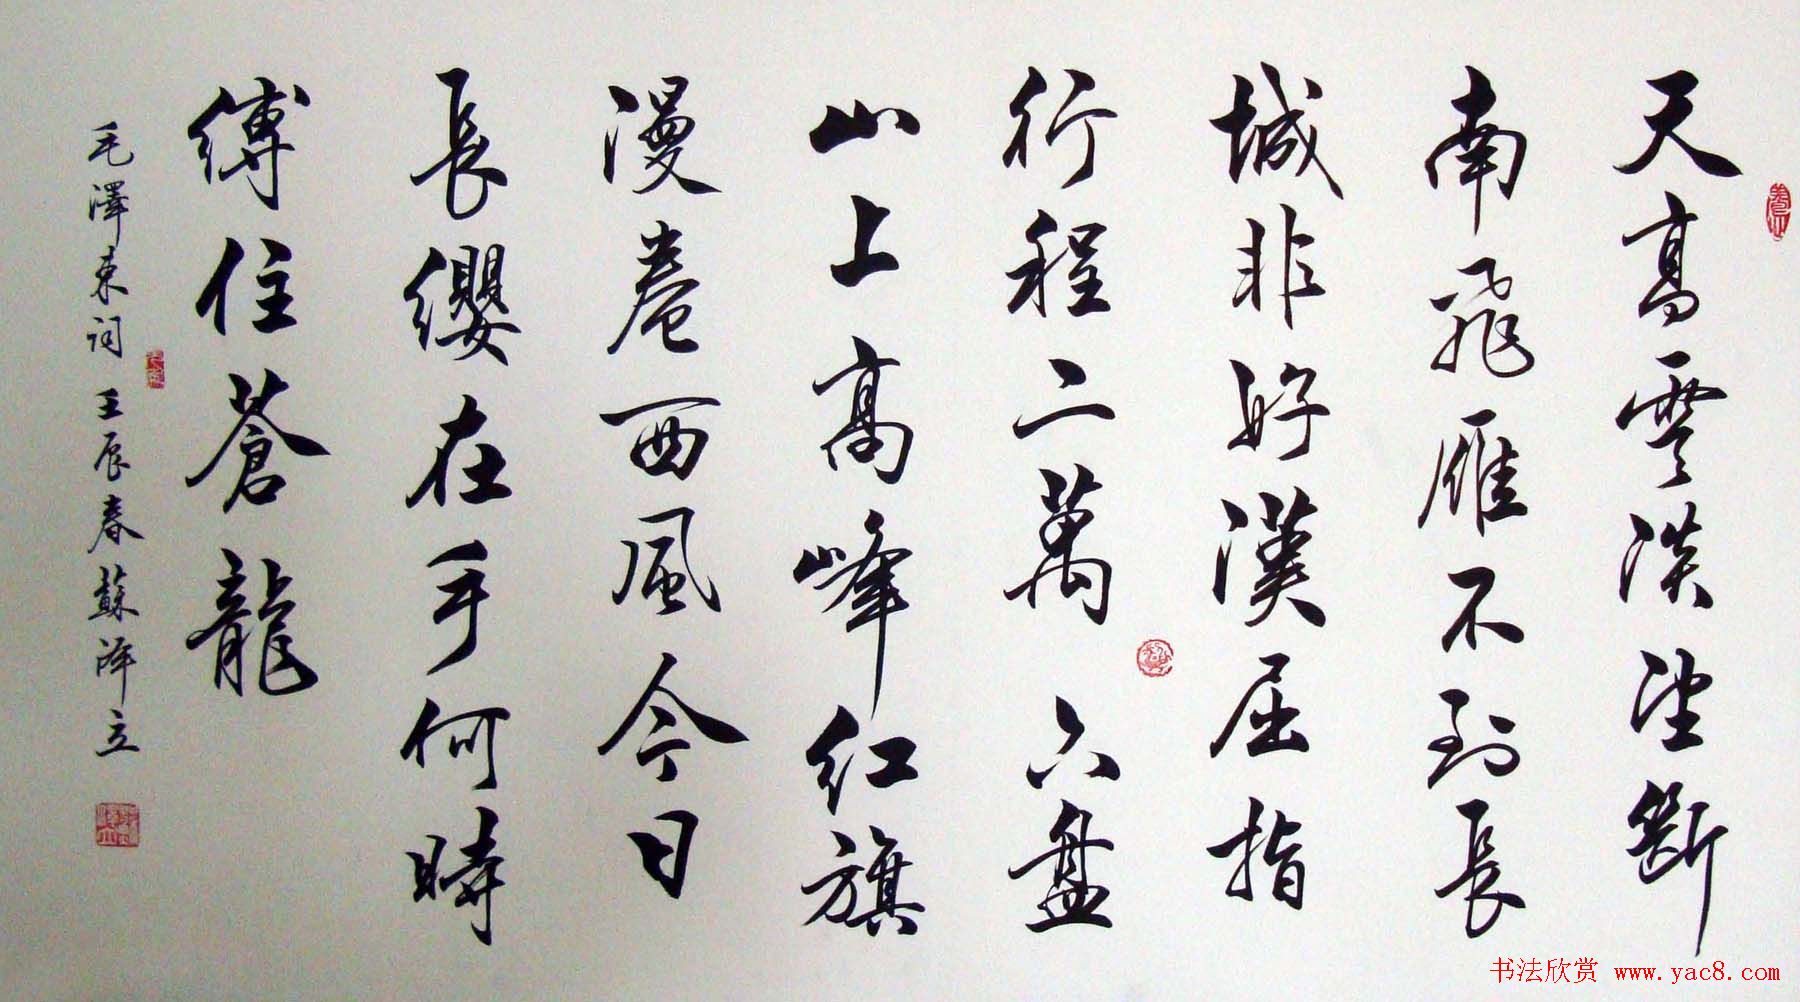 天高雲淡望斷
南飛雁不到長
城非好漢屈指
行程二萬六盤
山上高峰红旗
漫卷西風今日
長纓在手何時
縛住蒼龍
毛澤东词 壬辰春蘇泽立
书法欣赏 www.yac8.com